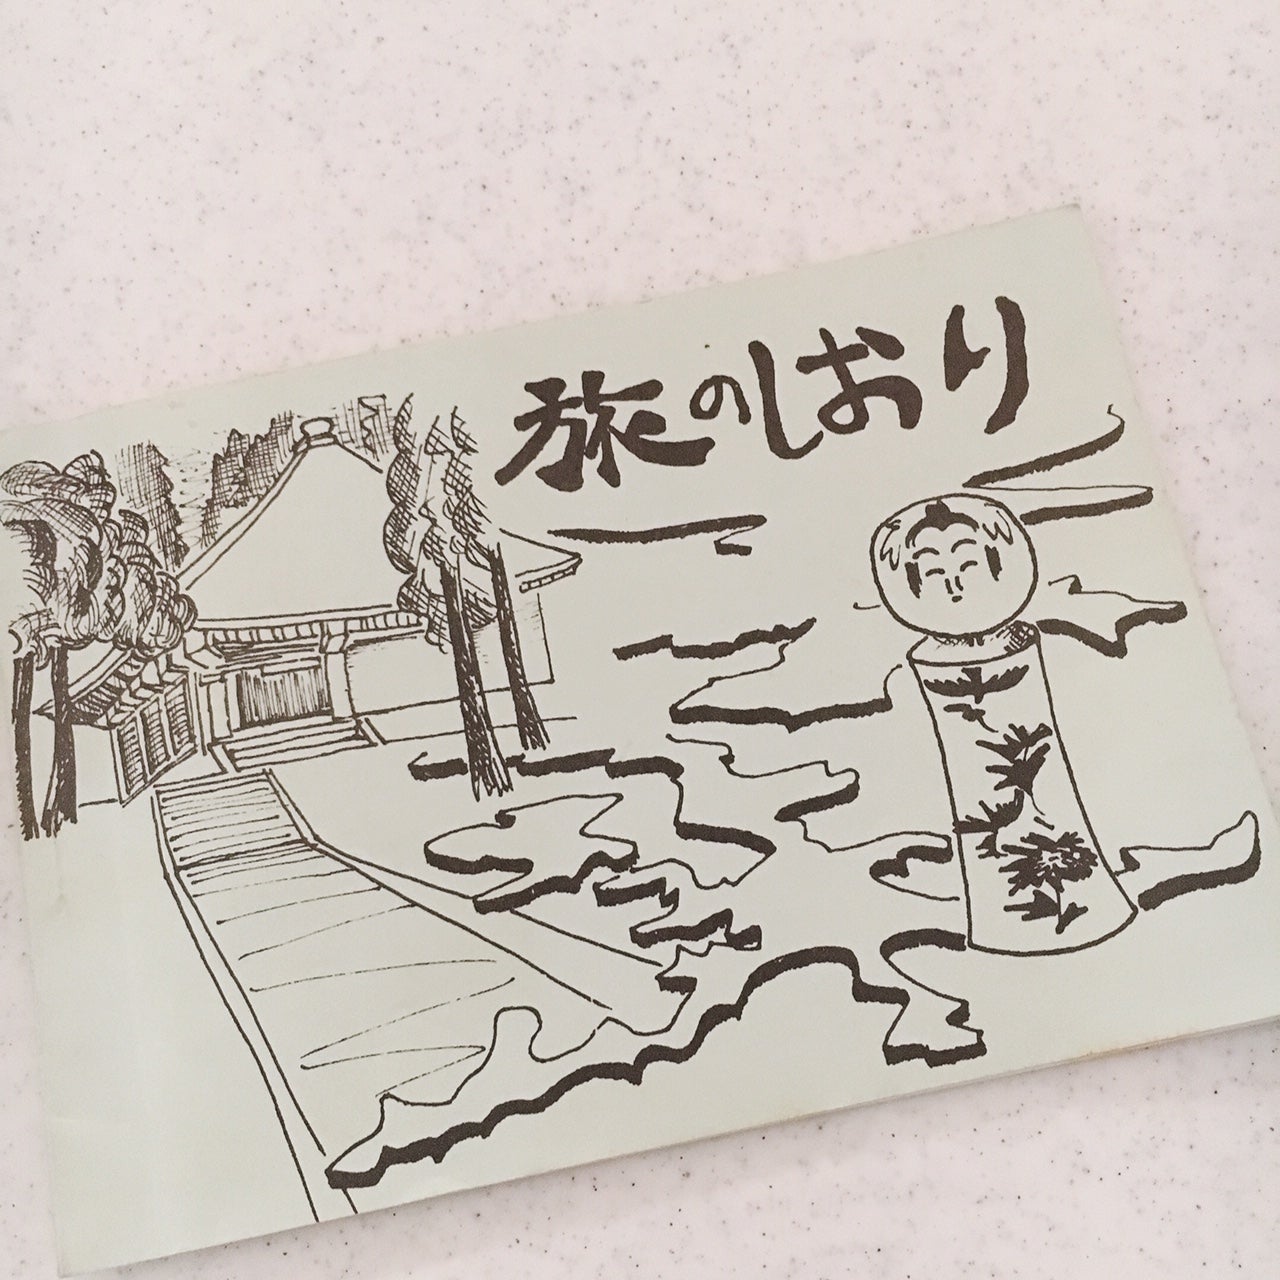 旅のしおり